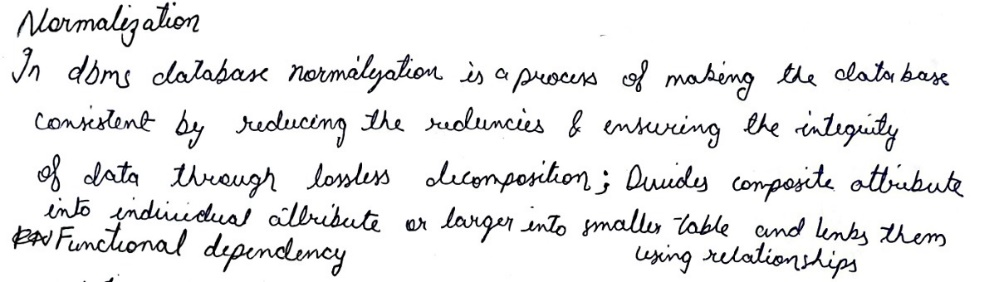 Normalization
In dbms database normalyation is a process of making the database
consistent by reducing the reduncies & ensuring the integrity
of data through lossless decomposition; Divides composite attribute
into individual attribute or larger into smaller table and links them
using relationships
Functional dependency